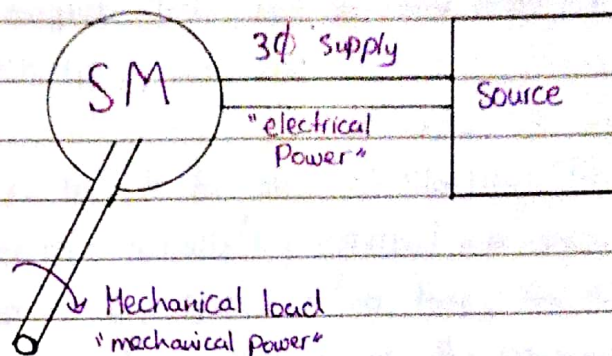 3Φ supply
SM
Source
"electrical
Power"
Mechanical load
"mechanical power"